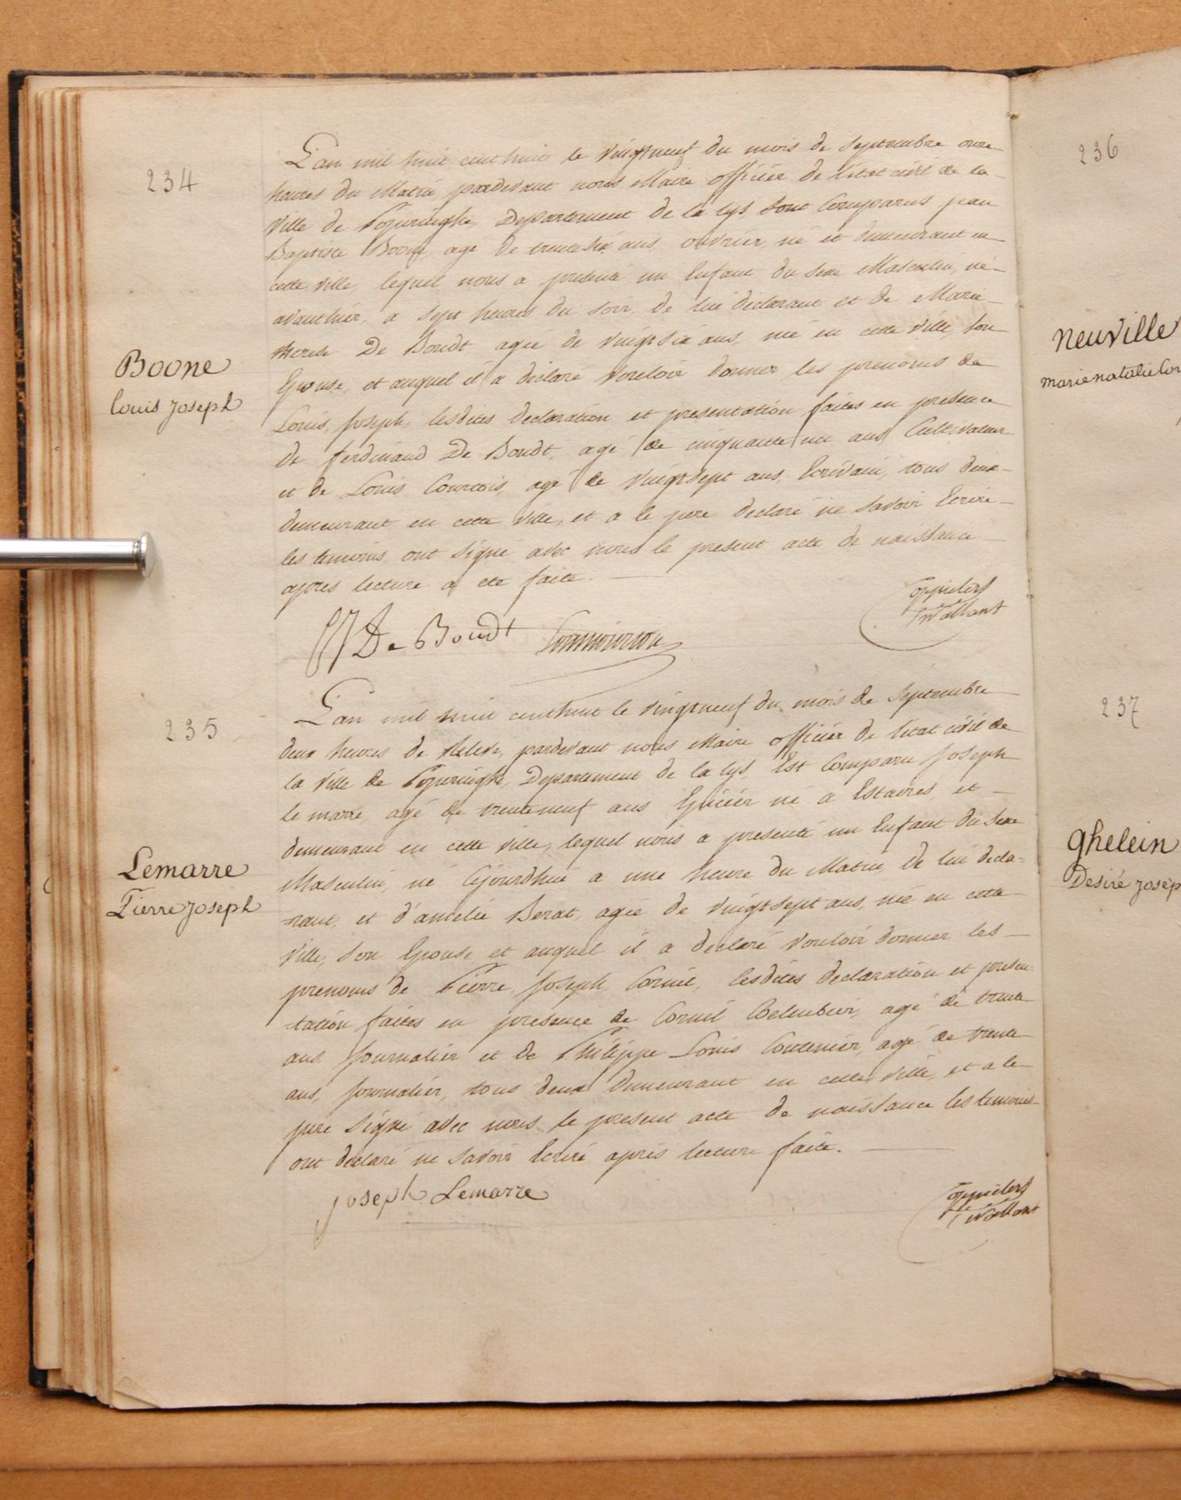 234
Boone
Louis Joseph
L'an mil huit cent huit le vingtneuf du mois de Septembre onze
heures du Matin pardevant nous Maire officier de l'etat civil de la
Ville de Poperinghe, Departement de la Lys Sont Comparus jean
Baptiste Boone agé de trentesix ans ouvrier, né et demeurant en
cette ville, lequel nous a presenté un Enfant du sexe Masculin, né
avanthier, a Sept heures du Soir, de lui declarant et de Marie
therese De Boudt agée de vingtsix ans, née en cette ville, Son
Epouse, et auquel il a declaré Vouloir donner les prenoms de
Louis, Joseph, lesdites declaration et presentation faites en presence
de ferdinand De Boudt, agé de cinquante un ans Cultivateur
et de Louis Courtois, agé de vingtsept ans, Ecrivain, tous deux
demeurant en cette ville, et a le pere declaré ne Savoir Ecrire
les temoins ont Signé avec nous le present acte de naissance
apres lecture a eté faite.
De Boudt
235
Lemarre
Pierre Joseph
L'an mil huit cent huit le vingtneuf du mois de Septembre
deux heures de Relevé, pardevant nous Maire officier de l'etat civil de
la Ville de Poperinghe, Departement de la Lys, Est Comparu Joseph
le marre, agé de trenteneuf ans Epicier né a Estaires et
demeurant en cette ville, lequel nous a presenté un Enfant du Sexe
Masculin, né Cejourdhui a une heure du Matin de lui decla-
rant, et d'amelie Berat, agée de vingtsept ans, née en cette
Ville, Son Epouse et auquel il a declaré Vouloir donner les
prenoms de Pierre, Joseph, Cornil, lesdites declaration et presen-
tation faites en presence de Cornil agé de trente
ans Journalier et de Philippe Louis Coutenier, agé de trente
ans, Journalier, tous deux demeurant en cette ville, et a le
pere Signé avec nous le present acte de naissance les temoins
ont declaré ne Savoir Ecrire apres lecture faite.
Joseph Lemarre
236
Neuville
marie natalie Cor
237
Ghelein
Desiré josep